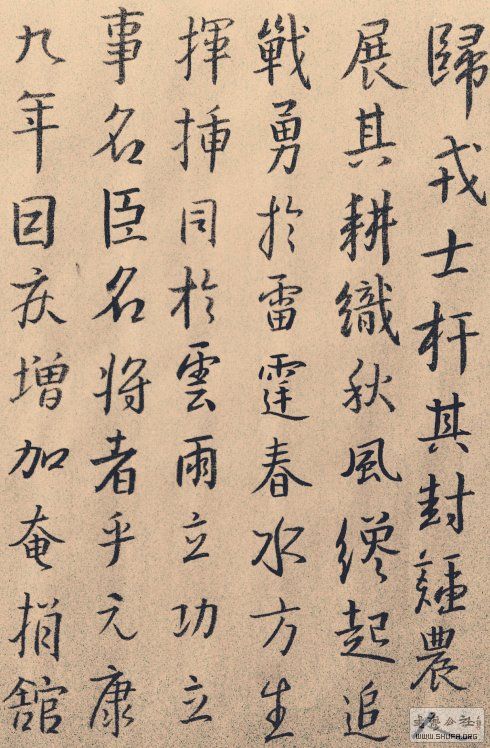 歸戎士杆其封疆農
展其耕織秋風纔起追
戰勇於雷霆春水方生
揮插同於雲雨立功立
事名臣名將者乎元康
九年因疾增加奄捐館
WWW.SHUFA.ORG